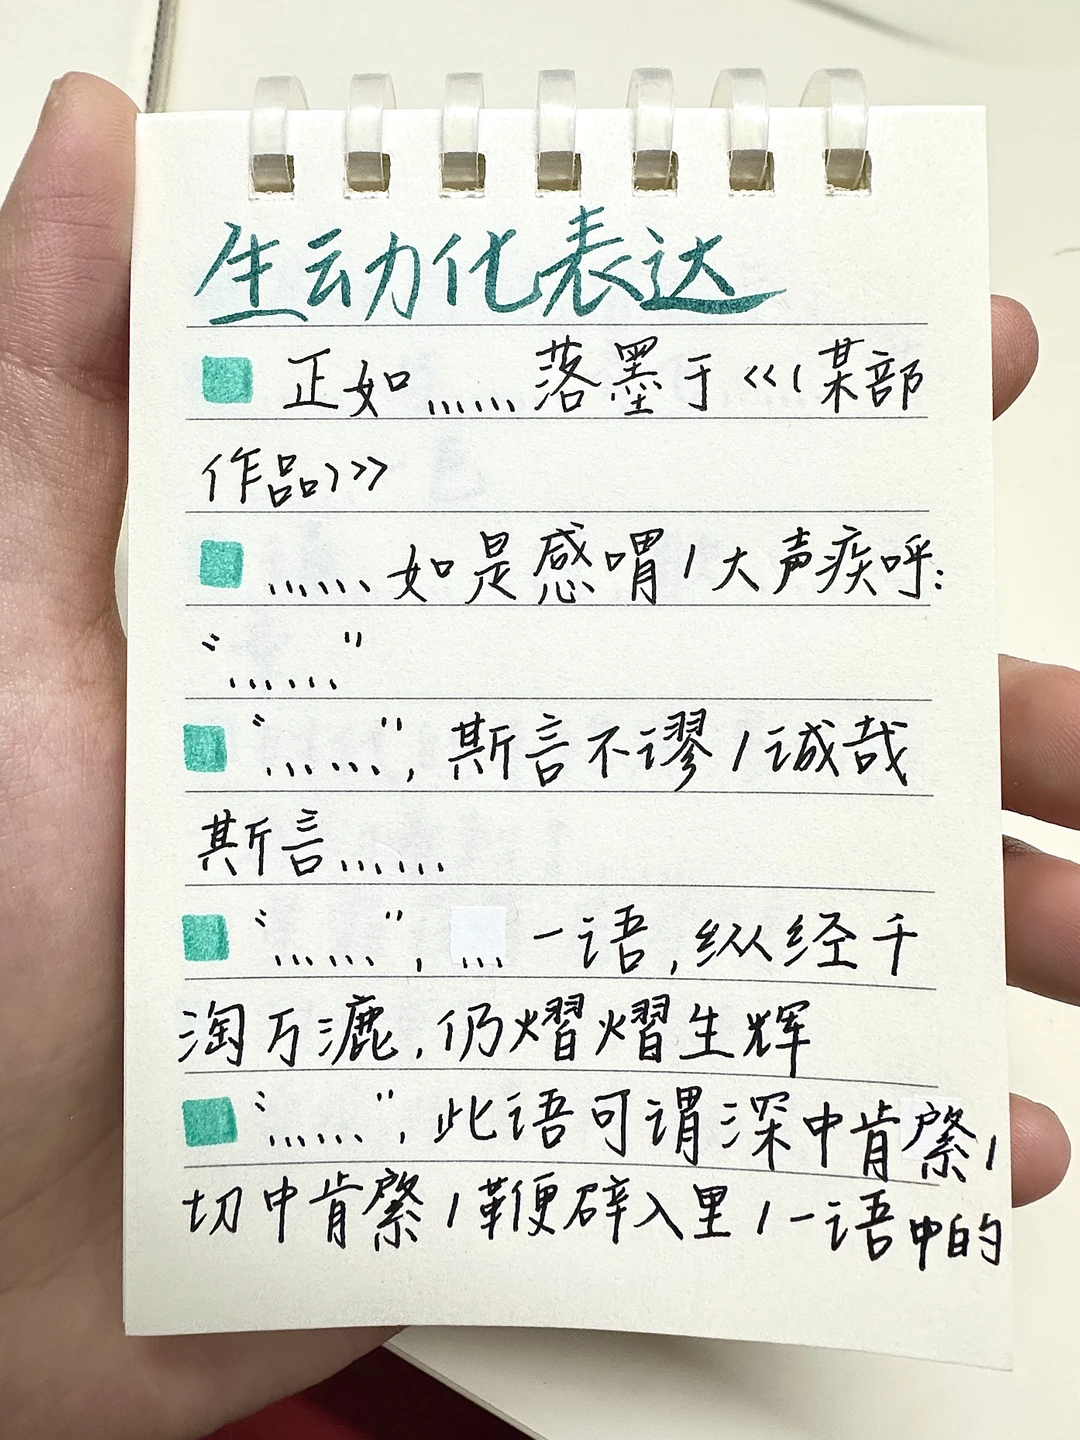 生动化表达
正如……落墨于《(某部
作品)》
……如是感喟/大声疾呼:
“……”
“……”,斯言不谬/诚哉
斯言……
“……”,…一语,纵经千
淘万漉,仍熠熠生辉
“……”,此语可谓深中肯綮/
切中肯綮/鞭辟入里/一语中的